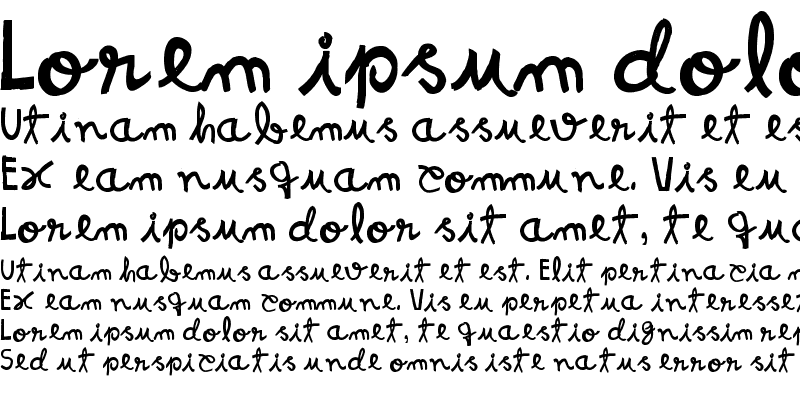 Lorem ipsum dolo
Utinam habemus assueverit et es
Ex eam nusquam commune. Vis eu
Lorem ipsum dolor sit amet, te qua
Utinam habemus assueverit et est. Elit pertinacia
Ex eam nusquam commune. Vis eu perpetua interesse
Lorem ipsum dolor sit amet, te quaestio dignissim rep
Sed ut perspiciatis unde omnis iste natus error sit